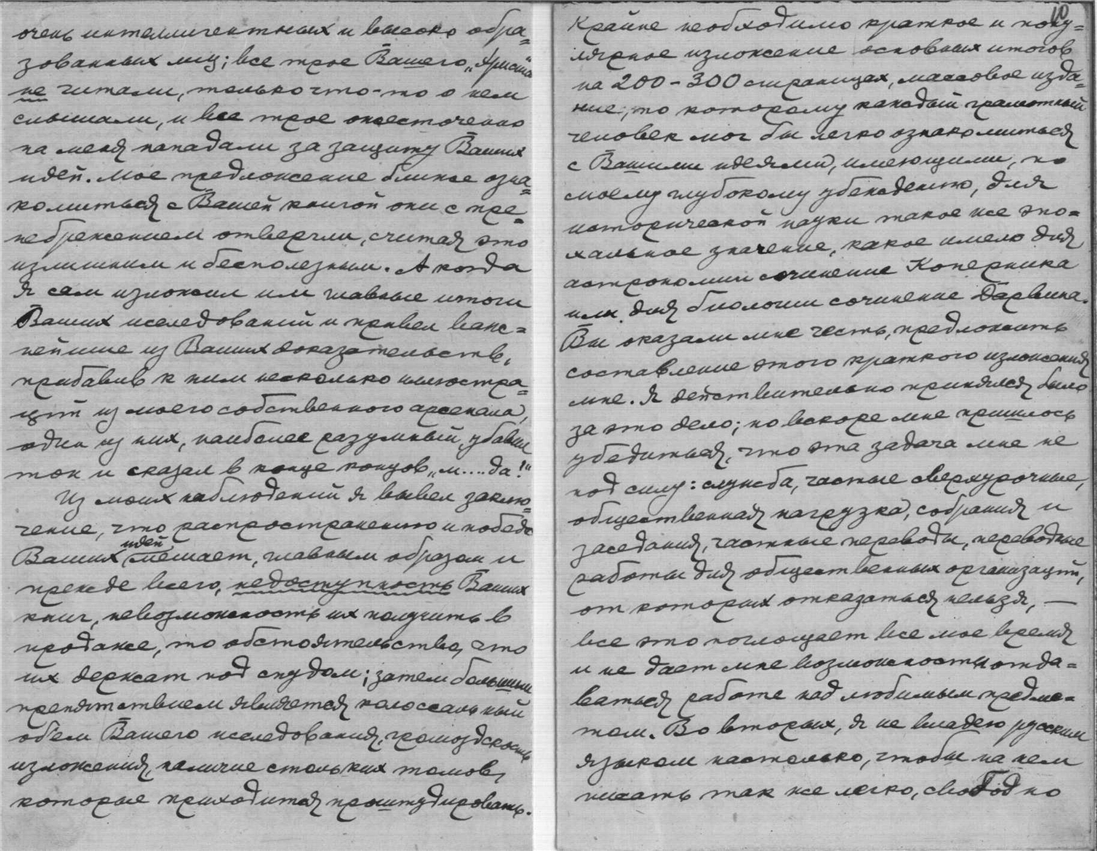 очень интеллигентных и высоко обра=
зованных лиц; все трое Вашего „Христа"
не читали, только что-то о нем
слышали, и все трое ожесточенно
на меня нападали за защиту Ваших
идей. Мое предложение ближе озна=
комиться с Вашей книгой они с пре=
небрежением отвергли, считая это
излишним и бесполезным. А когда
я сам изложил им главные итоги
Ваших исследований и привел важ=
нейшие из Ваших доказательств,
прибавив к ним несколько иллюстра=
ций из моего собственного арсенала,
один из них, наиболее разумный, убавил
тон и сказал в конце концов „м....да!"
Из моих наблюдений я вывел заклю=
чение, что распространению и победе
Ваших идей мешает, главным образом и
прежде всего, недоступность Ваших
книг, невозможность их получить в
продаже, то обстоятельство, что
их держат под спудом; затем большим
препятствием является колоссальный
объем Вашего исследования, громоздкость
изложения, наличие стольких томов,
которые приходится проштудировать.
10
Крайне необходимо краткое и попу=
лярное изложение основных итогов
на 200-300 страницах, массовое изда=
ние, по которому каждый грамотный
человек мог бы легко ознакомиться
с Вашими идеями, имеющими, по
моему глубокому убеждению, для
исторической науки такое же эпо=
хальное значение, какое имело для
астрономии сочинение Коперника
или для биологии сочинение Дарвина.
Вы оказали мне честь, предложить
составление этого краткого изложения
мне. Я действительно принялся было
за это дело; но вскоре мне пришлось
убедиться, что эта задача мне не
под силу: служба, частые сверхурочные,
общественная нагрузка, собрания и
заседания, частные переводы, переводные
работы для общественных организаций,
от которых отказаться нельзя, —
все это поглощает все мое время
и не дает мне возможности отда=
ваться работе над любимым предме=
том. Во вторых, я не владею русским
языком настолько, чтобы на нем
писать так же легко, свободно